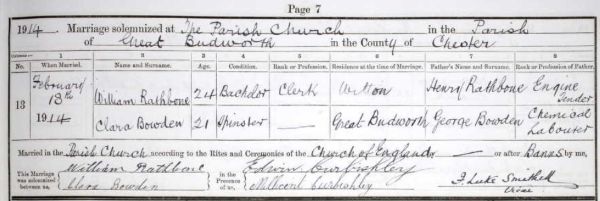 Page 7
1914. Marriage solemnized at The Parish Church in the Parish
of Great Budworth in the County of Chester
1 2 3 4 5 6 7 8
No. When Married. Name and Surname. Age. Condition. Rank or Profession. Residence at the time of Marriage. Father's Name and Surname. Rank or Profession of Father.
13 February 13th 1914 William Rathbone 24 Bachelor Clerk Witton Henry Rathbone Engine Tender
Clara Bowden 21 Spinster — Great Budworth George Bowden Chemical Labourer
Married in the Parish Church according to the Rites and Ceremonies of the Church of England — or after Banns by me,
This Marriage was solemnized between us, William Rathbone in the Presence of us, Edwin
Clara Bowden Millicent F. Luke